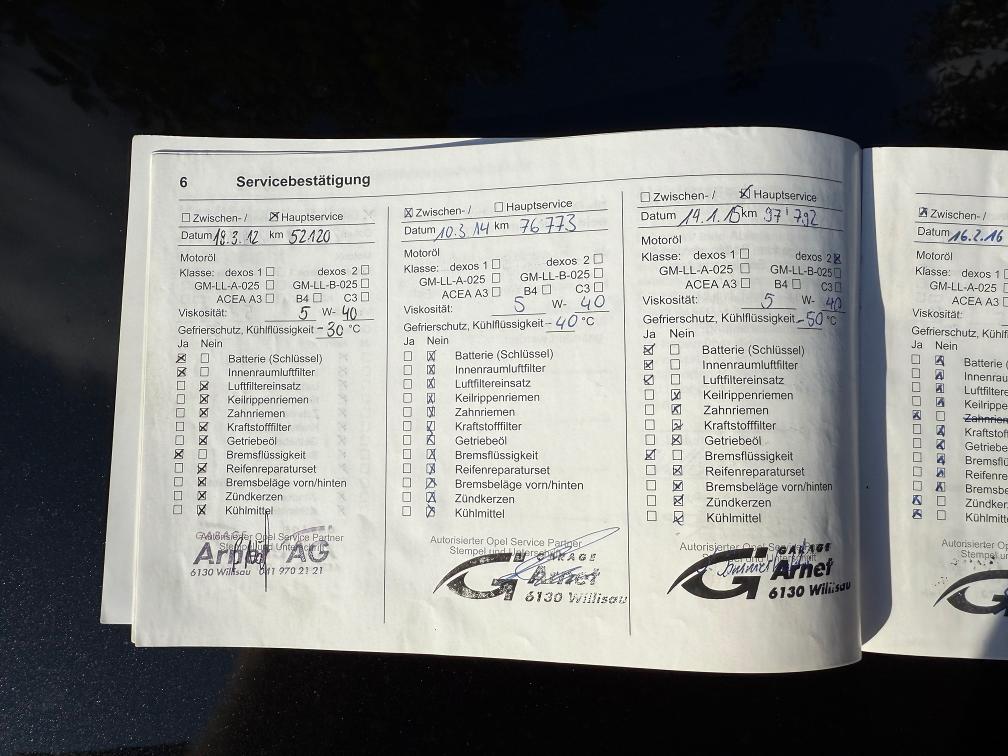 6 Servicebestätigung
☐ Zwischen- / ☒ Hauptservice
Datum 19.3.12 km 52120
Motoröl
Klasse: dexos 1 ☐ dexos 2 ☐
GM-LL-A-025 ☐ GM-LL-B-025 ☐
ACEA A3 ☐ B4 ☐ C3 ☐
Viskosität: 5 W- 40
Gefrierschutz, Kühlflüssigkeit -30 °C
Ja Nein
☒ ☐ Batterie (Schlüssel)
☒ ☐ Innenraumluftfilter
☐ ☒ Luftfiltereinsatz
☐ ☒ Keilrippenriemen
☐ ☒ Zahnriemen
☐ ☒ Kraftstofffilter
☐ ☒ Getriebeöl
☒ ☐ Bremsflüssigkeit
☐ ☒ Reifenreparaturset
☐ ☒ Bremsbeläge vorn/hinten
☐ ☒ Zündkerzen
☐ ☒ Kühlmittel
GARAGE
Autorisierter Opel Service Partner
Stempel und Unterschrift
Arnet AG
6130 Willisau 041 970 21 21
☒ Zwischen- / ☐ Hauptservice
Datum 10.3 14 km 76'773
Motoröl
Klasse: dexos 1 ☐ dexos 2 ☐
GM-LL-A-025 ☐ GM-LL-B-025 ☐
ACEA A3 ☐ B4 ☐ C3 ☐
Viskosität: 5 W- 40
Gefrierschutz, Kühlflüssigkeit -40 °C
Ja Nein
☐ ☒ Batterie (Schlüssel)
☐ ☒ Innenraumluftfilter
☐ ☒ Luftfiltereinsatz
☐ ☒ Keilrippenriemen
☐ ☒ Zahnriemen
☐ ☒ Kraftstofffilter
☐ ☒ Getriebeöl
☐ ☒ Bremsflüssigkeit
☐ ☒ Reifenreparaturset
☐ ☒ Bremsbeläge vorn/hinten
☐ ☒ Zündkerzen
☐ ☒ Kühlmittel
Autorisierter Opel Service Partner
Stempel und Unterschrift
GARAGE
Arnet
6130 Willisau
☐ Zwischen- / ☒ Hauptservice
Datum 19.1.15 km 97'792
Motoröl
Klasse: dexos 1 ☐ dexos 2 ☒
GM-LL-A-025 ☐ GM-LL-B-025 ☐
ACEA A3 ☐ B4 ☐ C3 ☐
Viskosität: 5 W- 40
Gefrierschutz, Kühlflüssigkeit -50 °C
Ja Nein
☒ ☐ Batterie (Schlüssel)
☒ ☐ Innenraumluftfilter
☒ ☐ Luftfiltereinsatz
☐ ☒ Keilrippenriemen
☐ ☒ Zahnriemen
☐ ☒ Kraftstofffilter
☐ ☒ Getriebeöl
☒ ☐ Bremsflüssigkeit
☐ ☒ Reifenreparaturset
☐ ☒ Bremsbeläge vorn/hinten
☐ ☒ Zündkerzen
☐ ☒ Kühlmittel
Autorisierter Opel Service Partner
GARAGE
Arnet
6130 Willisau
☒ Zwischen- /
Datum 16.2.16
Motoröl
Klasse: dexos 1
GM-LL-A-025
ACEA A3
Viskosität:
Gefrierschutz, Kühlfl
Ja Nein
☐ ☒ Batterie (
☐ ☒ Innenraum
☐ ☒ Luftfilter
☐ ☒ Keilrippe
☒ ☐ Zahnriem
☐ ☒ Kraftstof
☐ ☒ Getriebe
☐ ☒ Bremsfl
☐ ☒ Reifenre
☐ ☒ Bremsbe
☒ ☐ Zündker
☒ ☐ Kühlmit
Autorisierter
Stempel